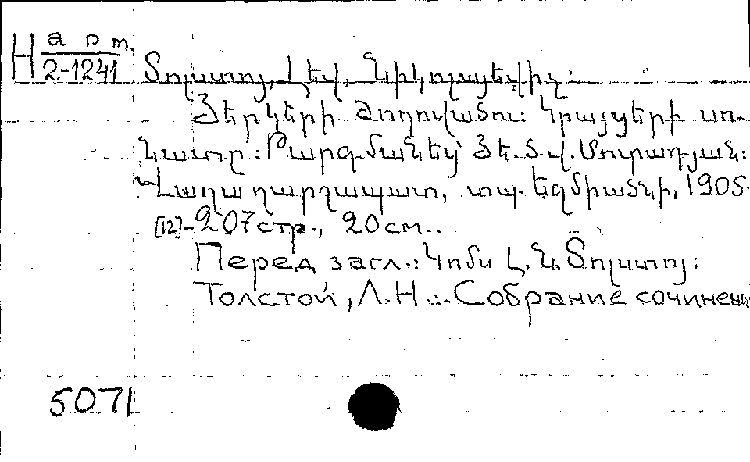 Н арт.
2-1241
Տոլստոյ, Լեվ Նիկոլայեվիչ:
Յերկերի ժողովածու: Կրայցերի սո-
նատը: Թարգմանեց Յե. Տ. Վ. Մուրադյան:
Վաղարշապատ, տպ. Եջմիածնի, 1905.
[12]-207 стр., 20 см.
Перед загл.: Կոմս Լ. Ն. Տոլստոյ:
Толстой, Л. Н. : Собрание сочинени
5071